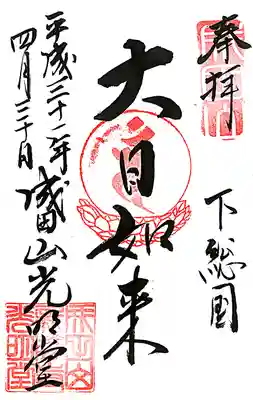 奉拝
下総国
大日如来
成田山光明堂
平成三十一年
四月三十日